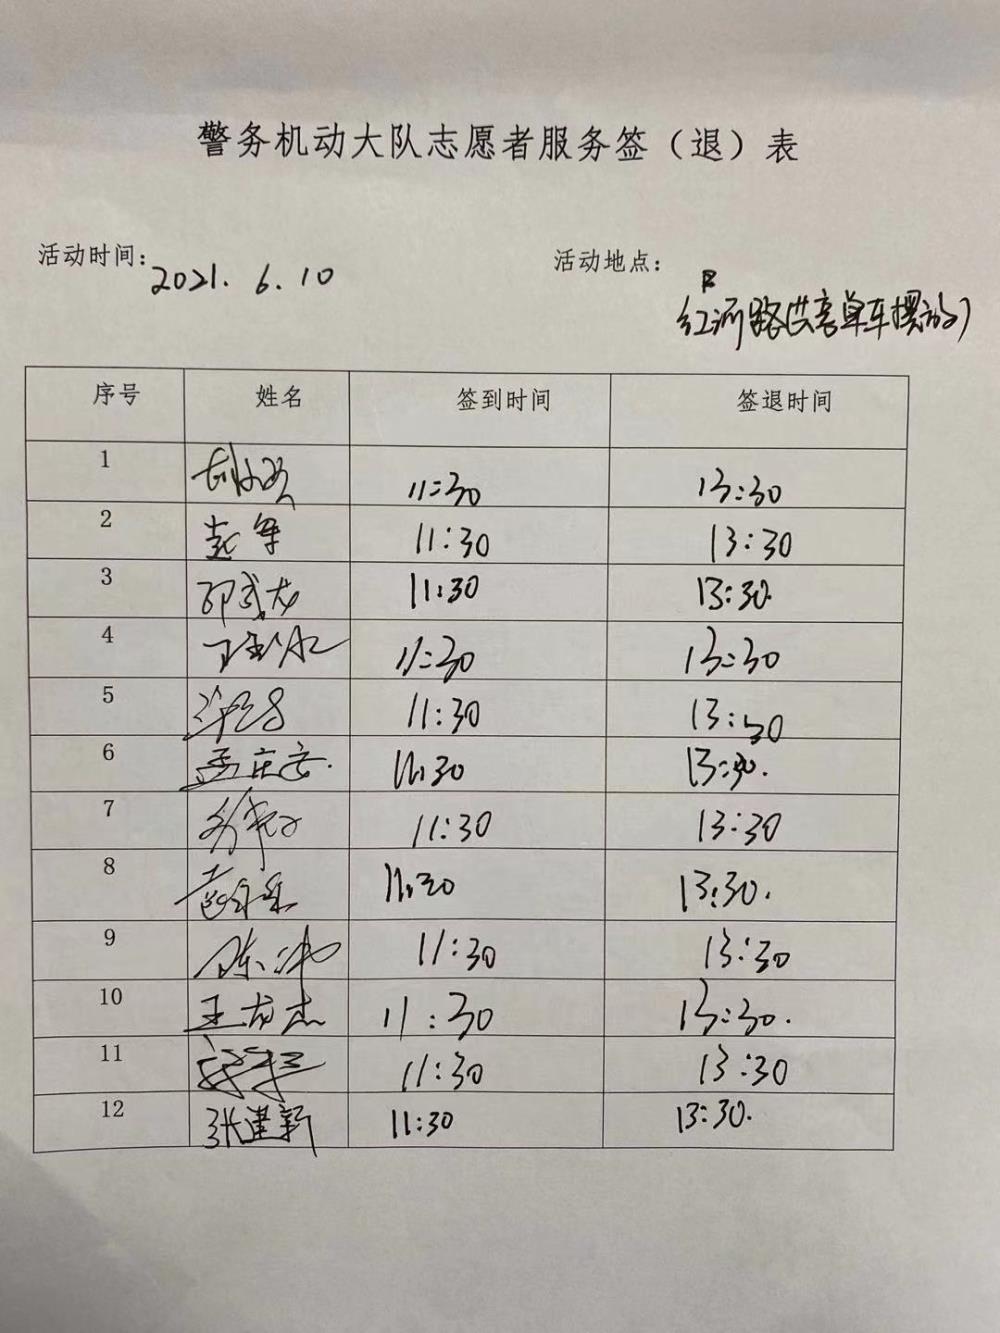 警务机动大队志愿者服务签（退）表
活动时间：2021.6.10 活动地点：
红河路共享单车摆放
序号 姓名 签到时间 签退时间
1 11:30 13:30
2 彭军 11:30 13:30
3 邵武龙 11:30 13:30.
4 11:30 13:30
5 11:30 13:30
6 孟庆安 11:30 13:30.
7 11:30 13:30
8 11:30 13:30.
9 陈冲 11:30 13:30
10 王龙杰 11:30 13:30.
11 11:30 13:30
12 张建新 11:30 13:30.